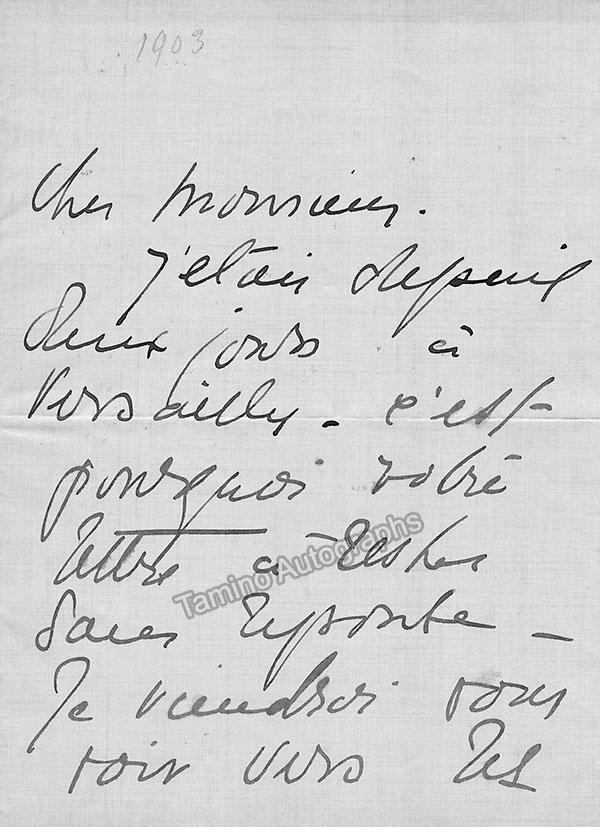 1903
Cher Monsieur.
j'étais depuis
deux jours à
Versailles - c'est
pourquoi votre
lettre a restée
sans réponse -
Je viendrai vous
voir vers les
Tamino Autographs